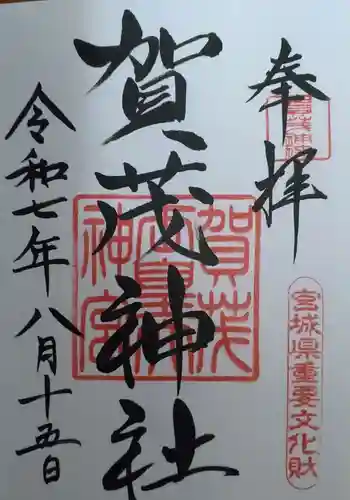 奉拝
宮城県重要文化財
賀茂神社
令和七年八月十五日